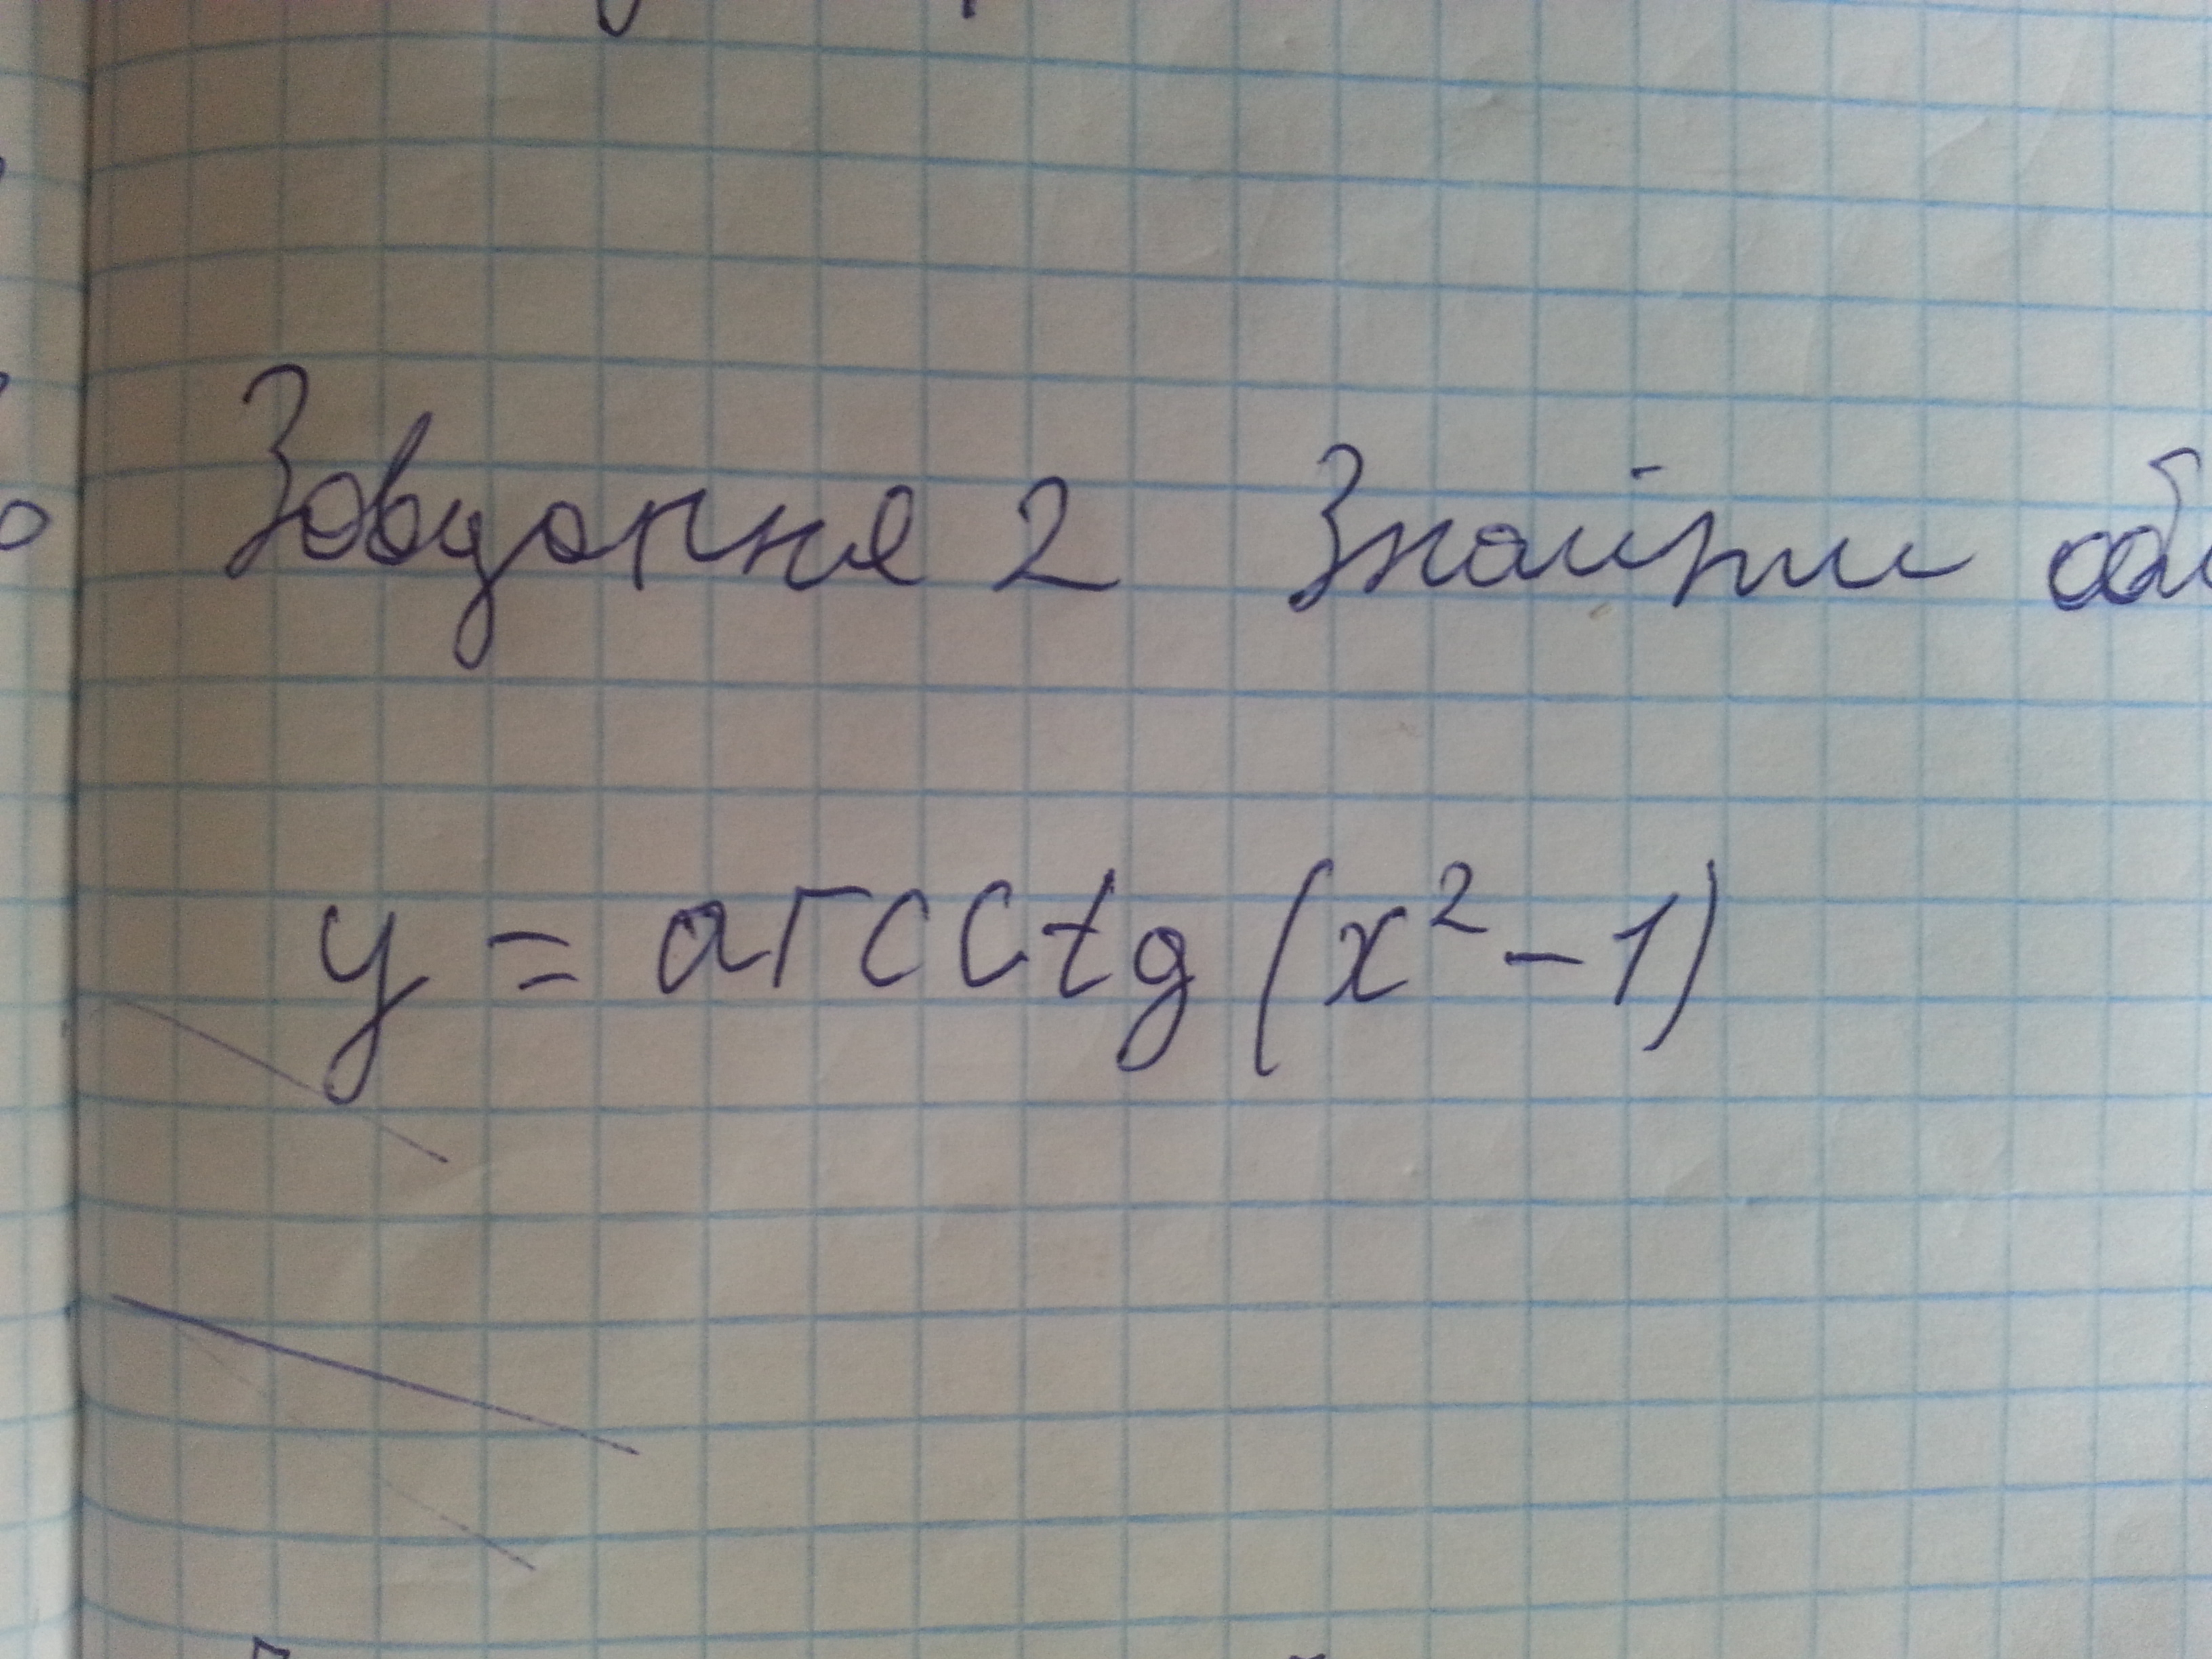 Завдання 2 Знайти об
y = arcctg (x² - 1)